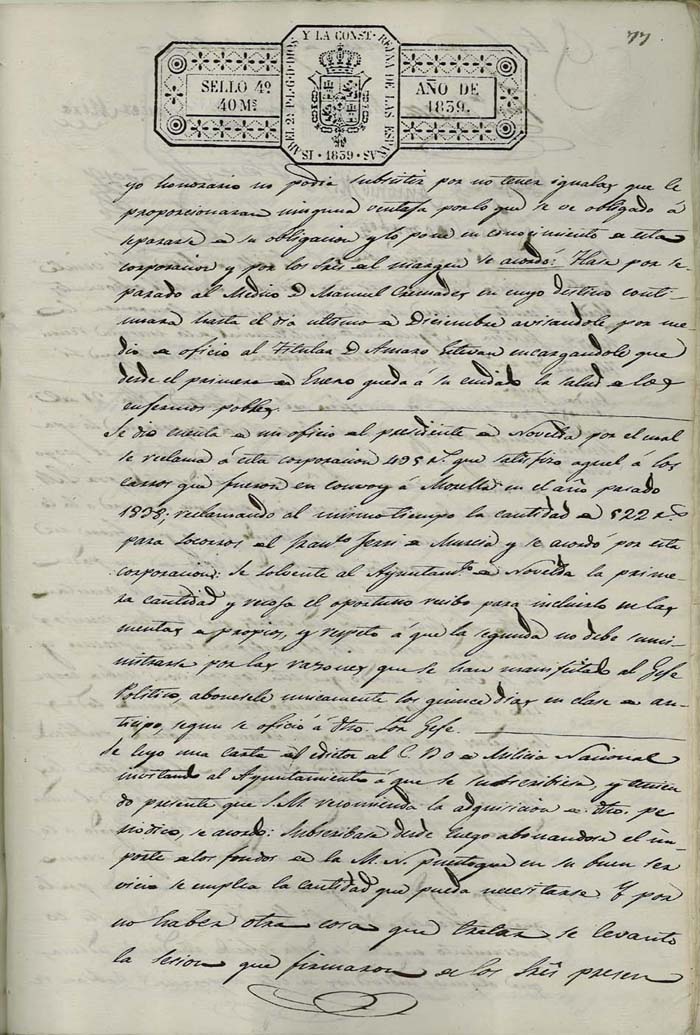 77
ISABEL 2ª P.L.G.D DIOS Y LA CONST. REYNA DE LAS ESPAÑAS · 1839 ·
SELLO 4º
40 Ms
AÑO DE
1839.
yo honorario no podia subsistir por no tener igualas que le
proporcionaran ninguna ventaja por lo que se ve obligado á
separarse de su obligacion y lo pone en conocimiento de esta
corporacion y por los Sres del margen se acordó: Han por se
parado al Medico D Manuel Cremades en cuyo destino conti
nuara hasta el dia ultimo de Diciembre avisandole por me
dio de oficio al Titular D Amaro Estevan encargandole que
desde el primero de Enero queda á su cuidado la salud de los
enfermos pobres.
Se dio cuenta de un oficio del presidente de Novelda por el cual
se reclama á esta corporacion 495 rs. que satisfizo aquel á los
carros que fueron en convoy á Morella en el año pasado
1838; reclamando al mismo tiempo la cantidad de 522 rs
para socorros del Franco Jerri de Murcia y se acordó por esta
corporacion: Se solvente al Ayuntamto de Novelda la prime
ra cantidad y recoja el oportuno recibo para incluirlo en las
cuentas de propios, y respeto á que la segunda no debe sumi
nistrarse por las razones que se han manifestado al Gefe
Politico, abonesele unicamente los quince dias en clase de an
ticipo, segun se ofició á dho. Sor Gefe.
Se leyo una carta del editor del C. D O de Milicia Nacional
invitando al Ayuntamiento á que se subscribiera, y tenien
do presente que S.M recomienda la adquisicion de dho. pe
riodico, se acordo: Subscribase desde luego abonandose el im
porte de los fondos de la M. N. puesto que en su buen ser
vicio se emplea la cantidad que pueda necesitarse Y por
no haber otra cosa que tratar se levantó
la sesion que firmaron de los Sres presen